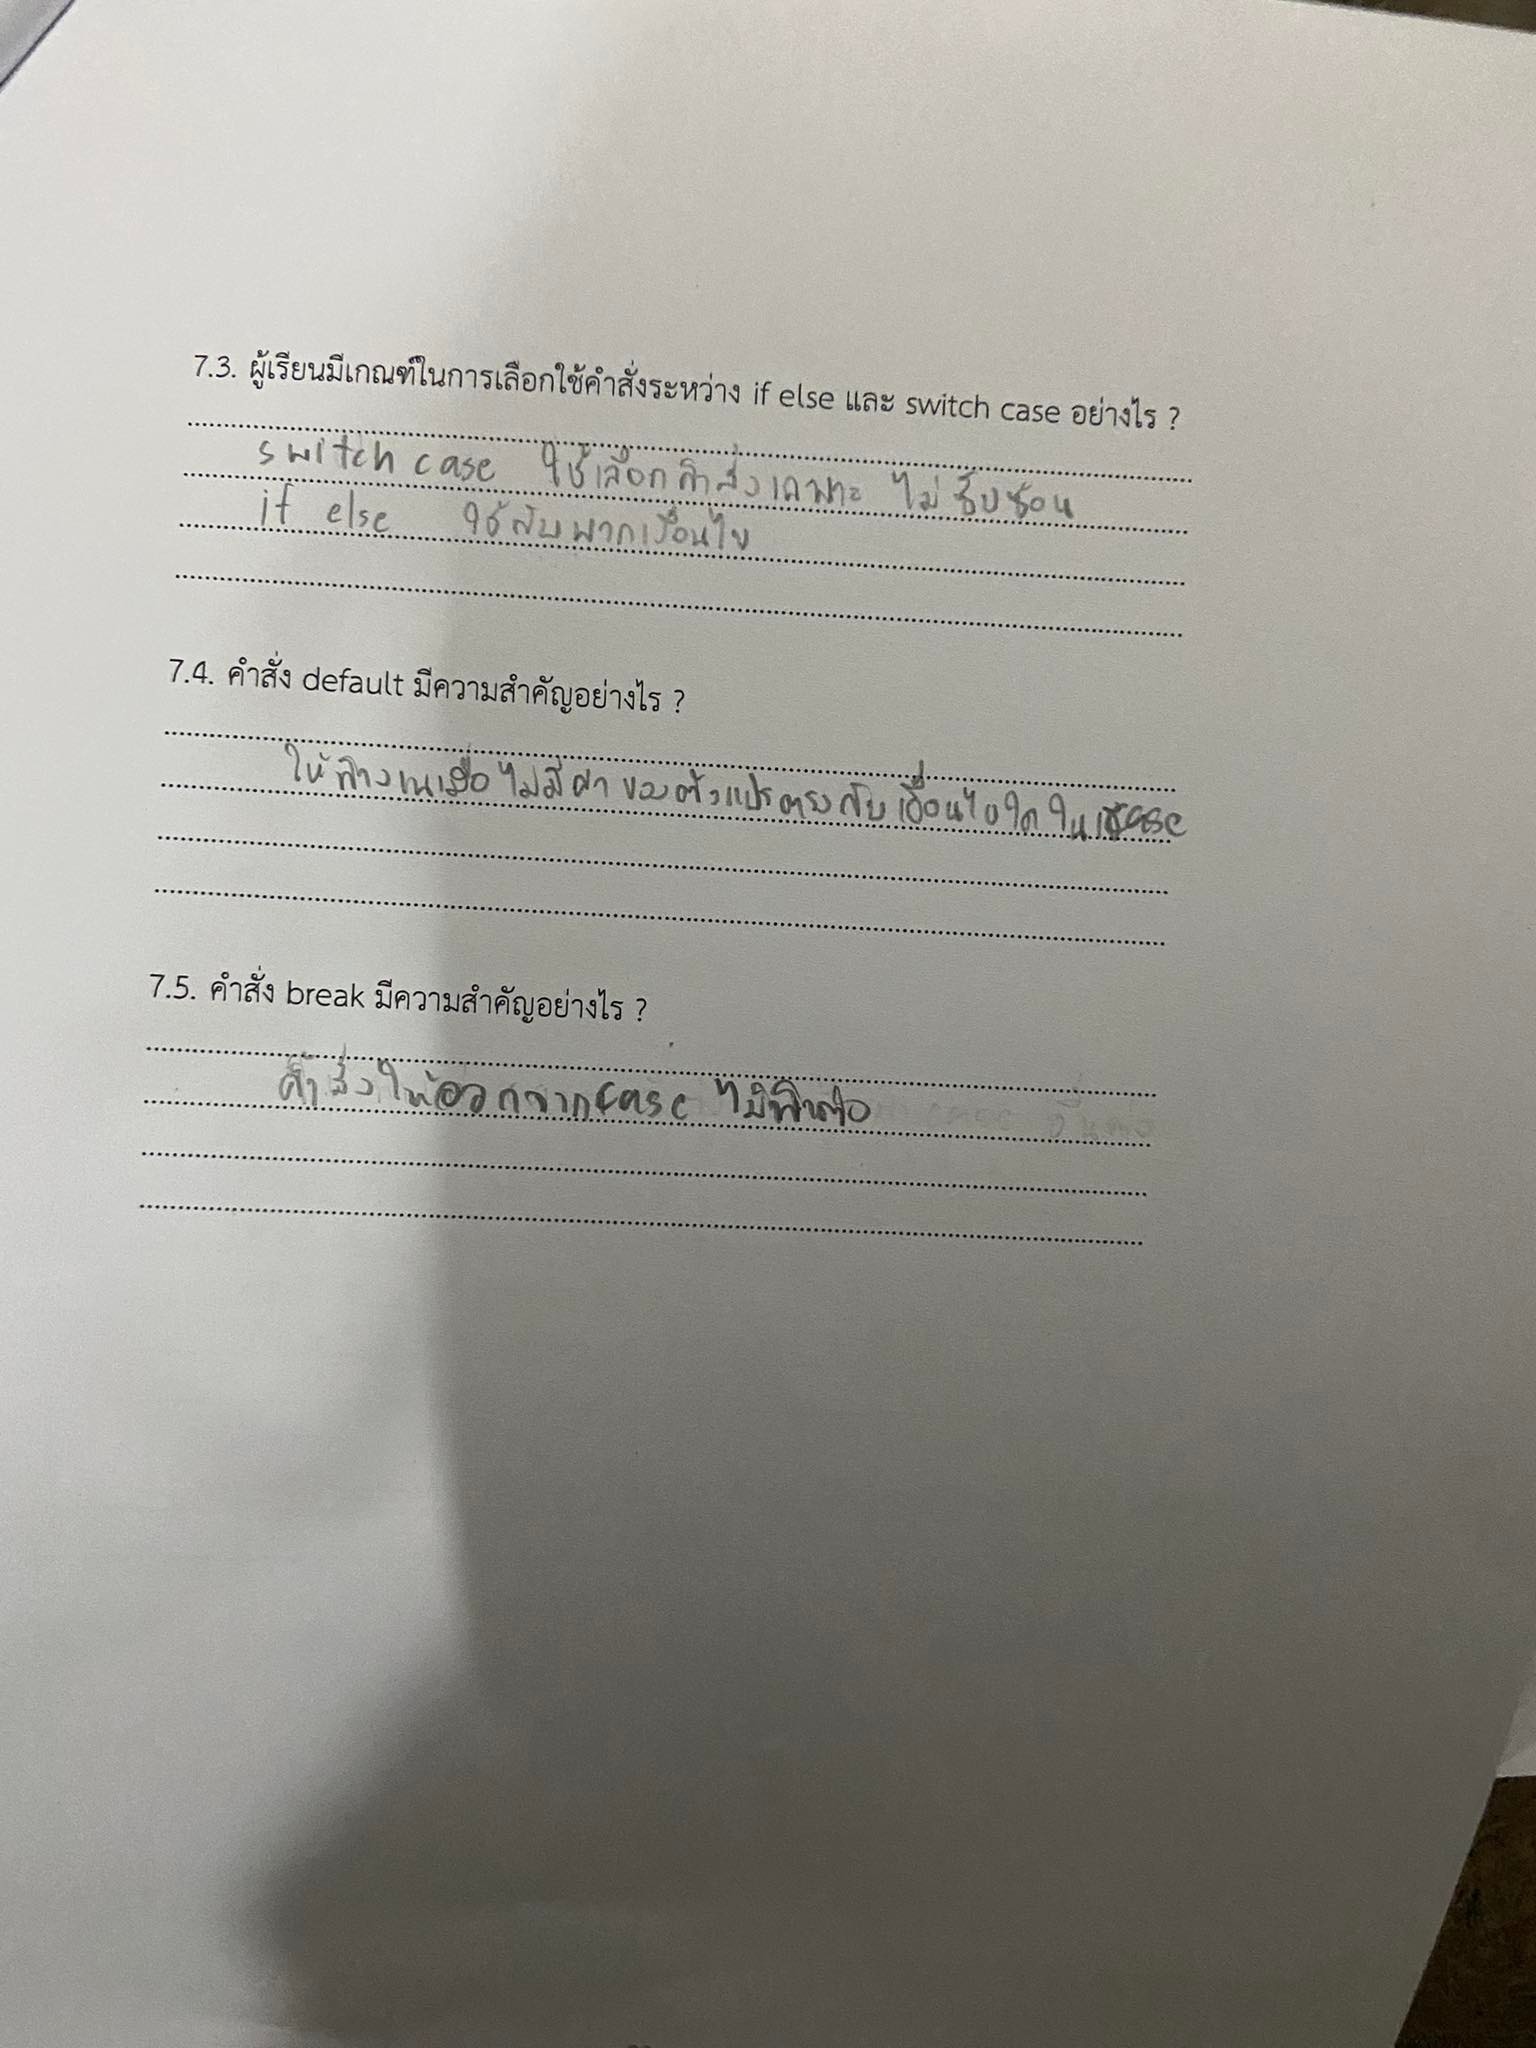 7.3. ผู้เรียนมีเกณฑ์ในการเลือกใช้คำสั่งระหว่าง if else และ switch case อย่างไร ?
switch case ใช้เลือกคำสั่งเฉพาะ ไม่ซับซ้อน
if else ใช้กับหลายเงื่อนไข
7.4. คำสั่ง default มีความสำคัญอย่างไร ?
ให้ทำงานเมื่อไม่มีค่าของตัวแปรตรงกับเงื่อนไขใดใน case
7.5. คำสั่ง break มีความสำคัญอย่างไร ?
คำสั่งให้ออกจาก case ไม่ทำต่อ